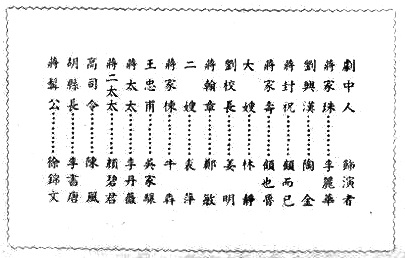 劇中人　飾演者
蔣家珠………李麗華
劉興漢………陶金
蔣封祝………顧而已
蔣家壽………顧也魯
大嫂………林靜
劉校長………姜明
蔣翰章………鄭敏
二嫂………袁萍
蔣家棟………牛犇
王忠甫………吳家驤
蔣太太………李丹薇
蔣二太太………賴碧君
高司令………陳風
胡縣長………李書唐
蔣賢公………徐錦文